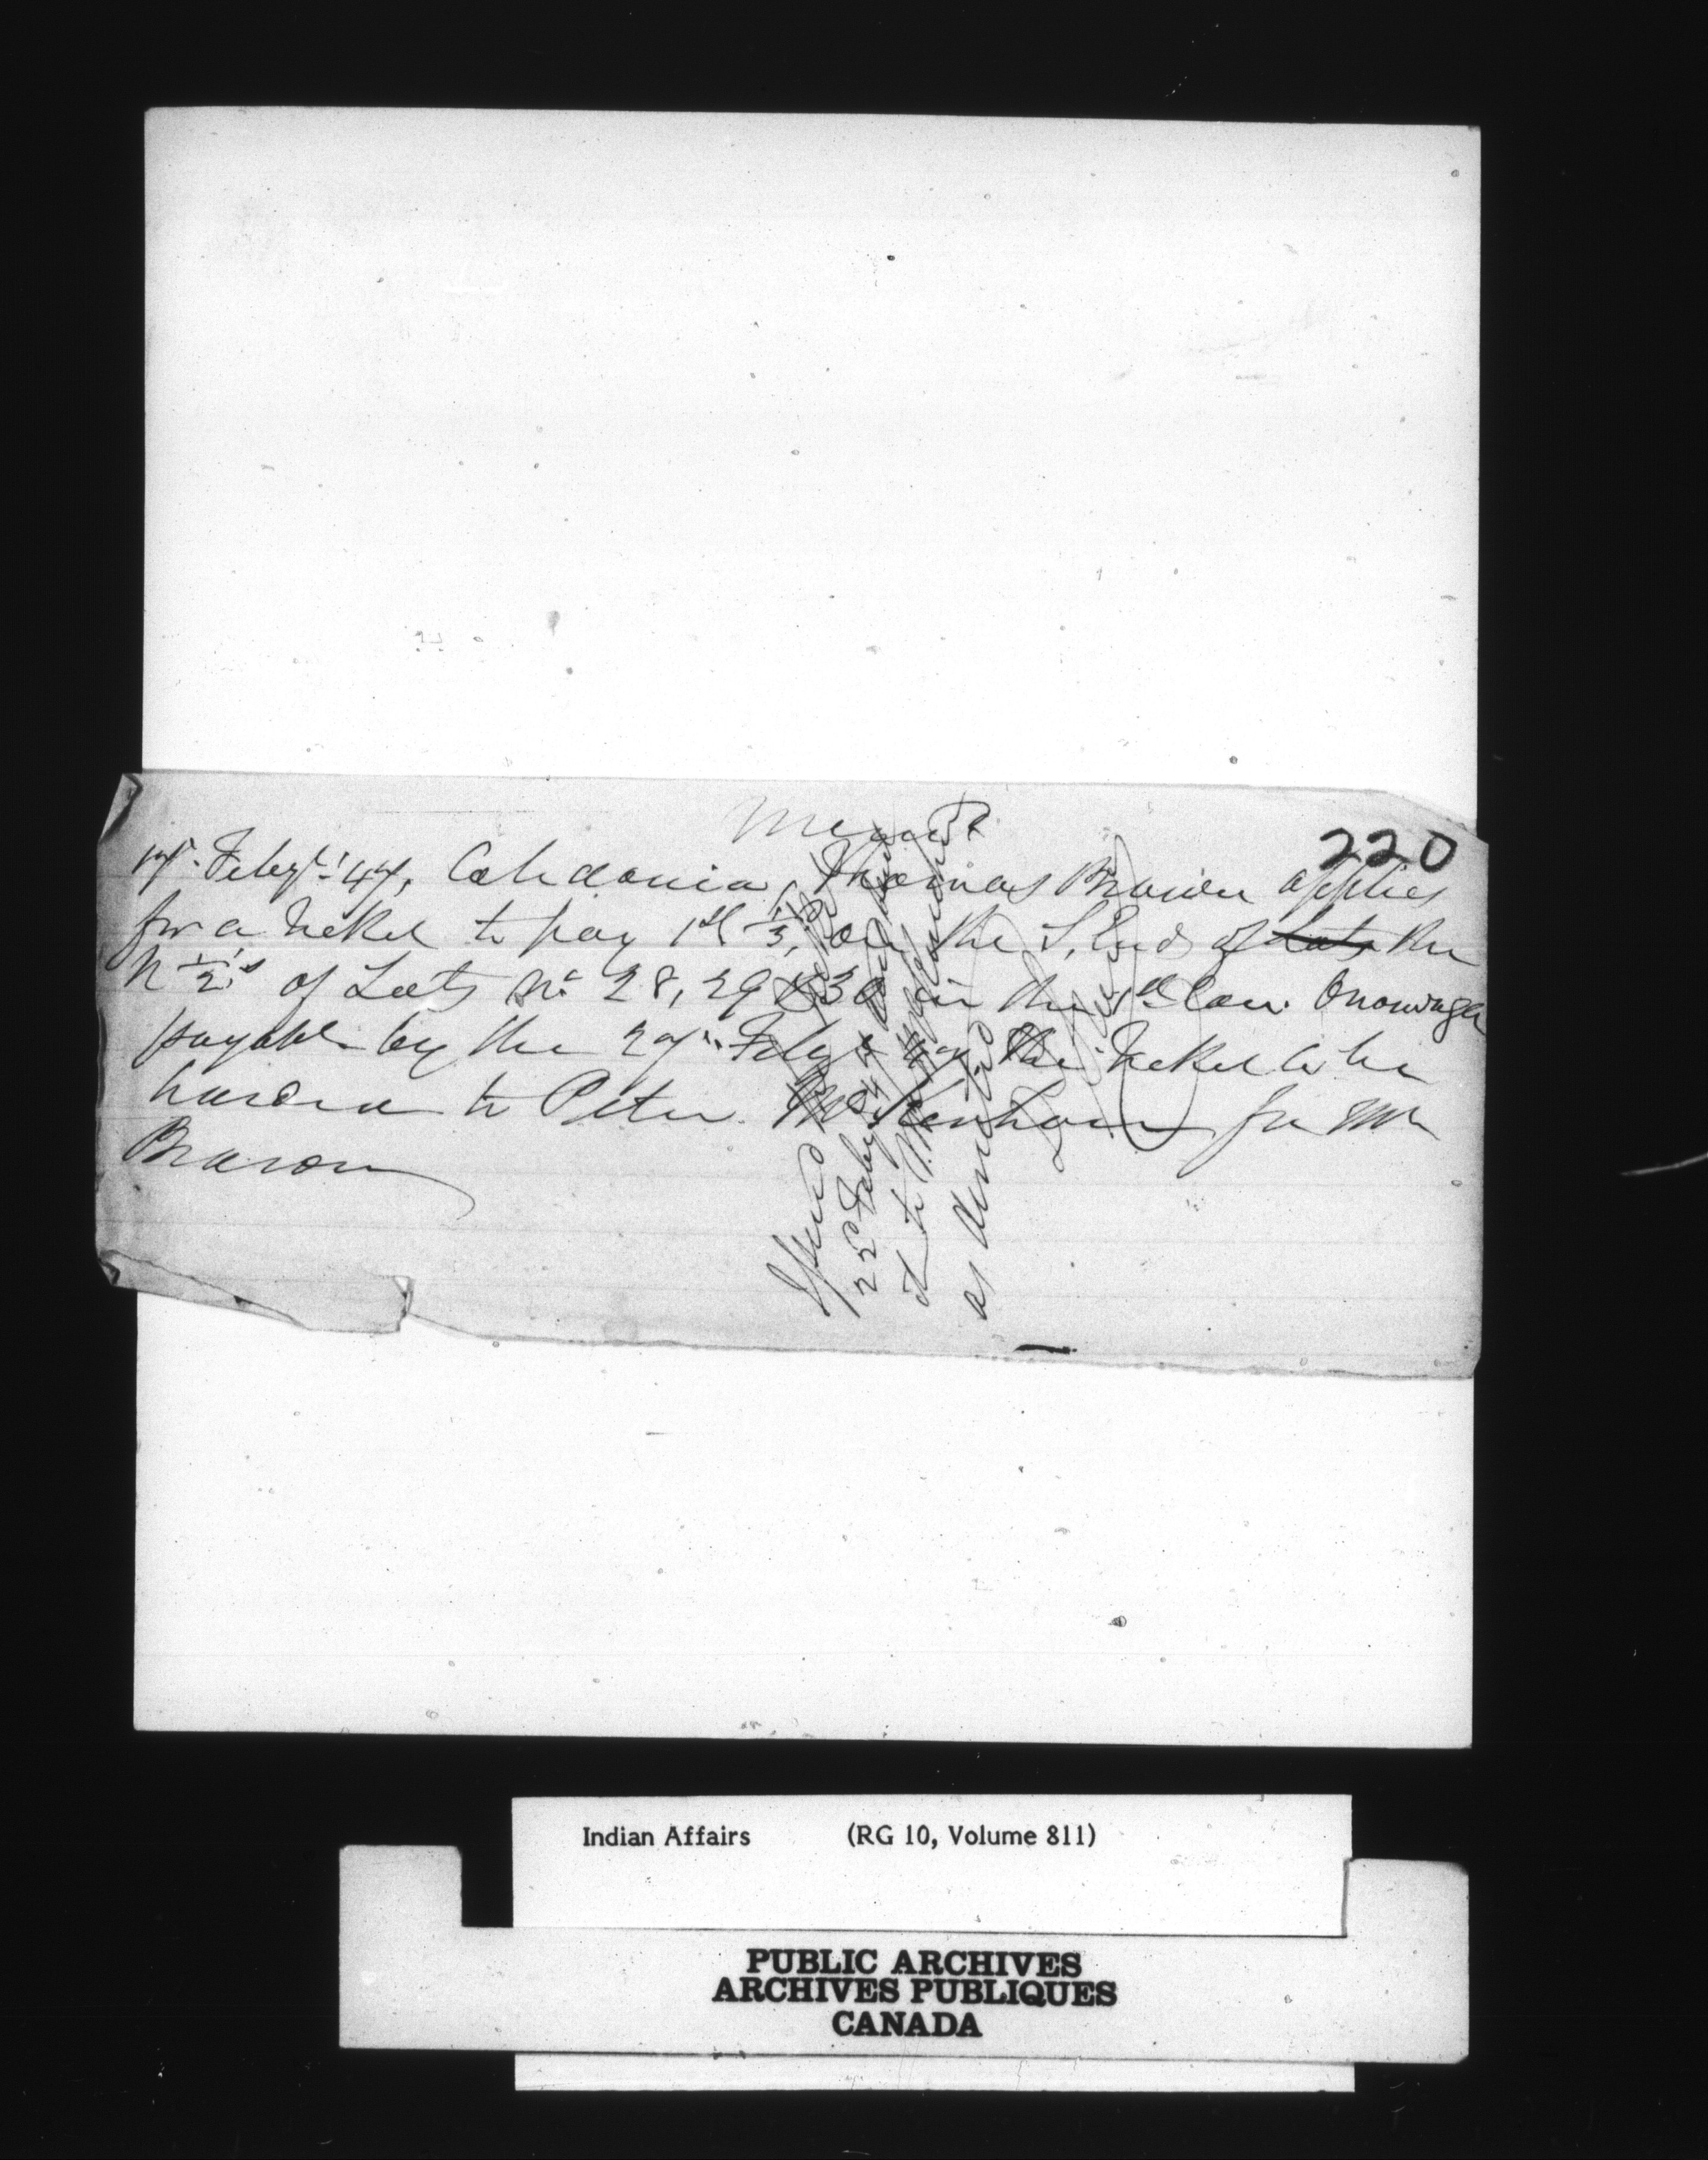 220
17th Feby '47, Caledonia, Thomas Brown applies
for a ticket to pay 1st 1/3, on the S. End of Lots the
N 1/2's of Lots No 28, 29 & 30 in the 1st Con. Onondaga
payable by the 27th Feby the ticket to be
handed to Peter for Mr
Brown
Issued
22d Feby 47 and
it to
as directed
Indian Affairs (RG 10, Volume 811)
PUBLIC ARCHIVES
ARCHIVES PUBLIQUES
CANADA